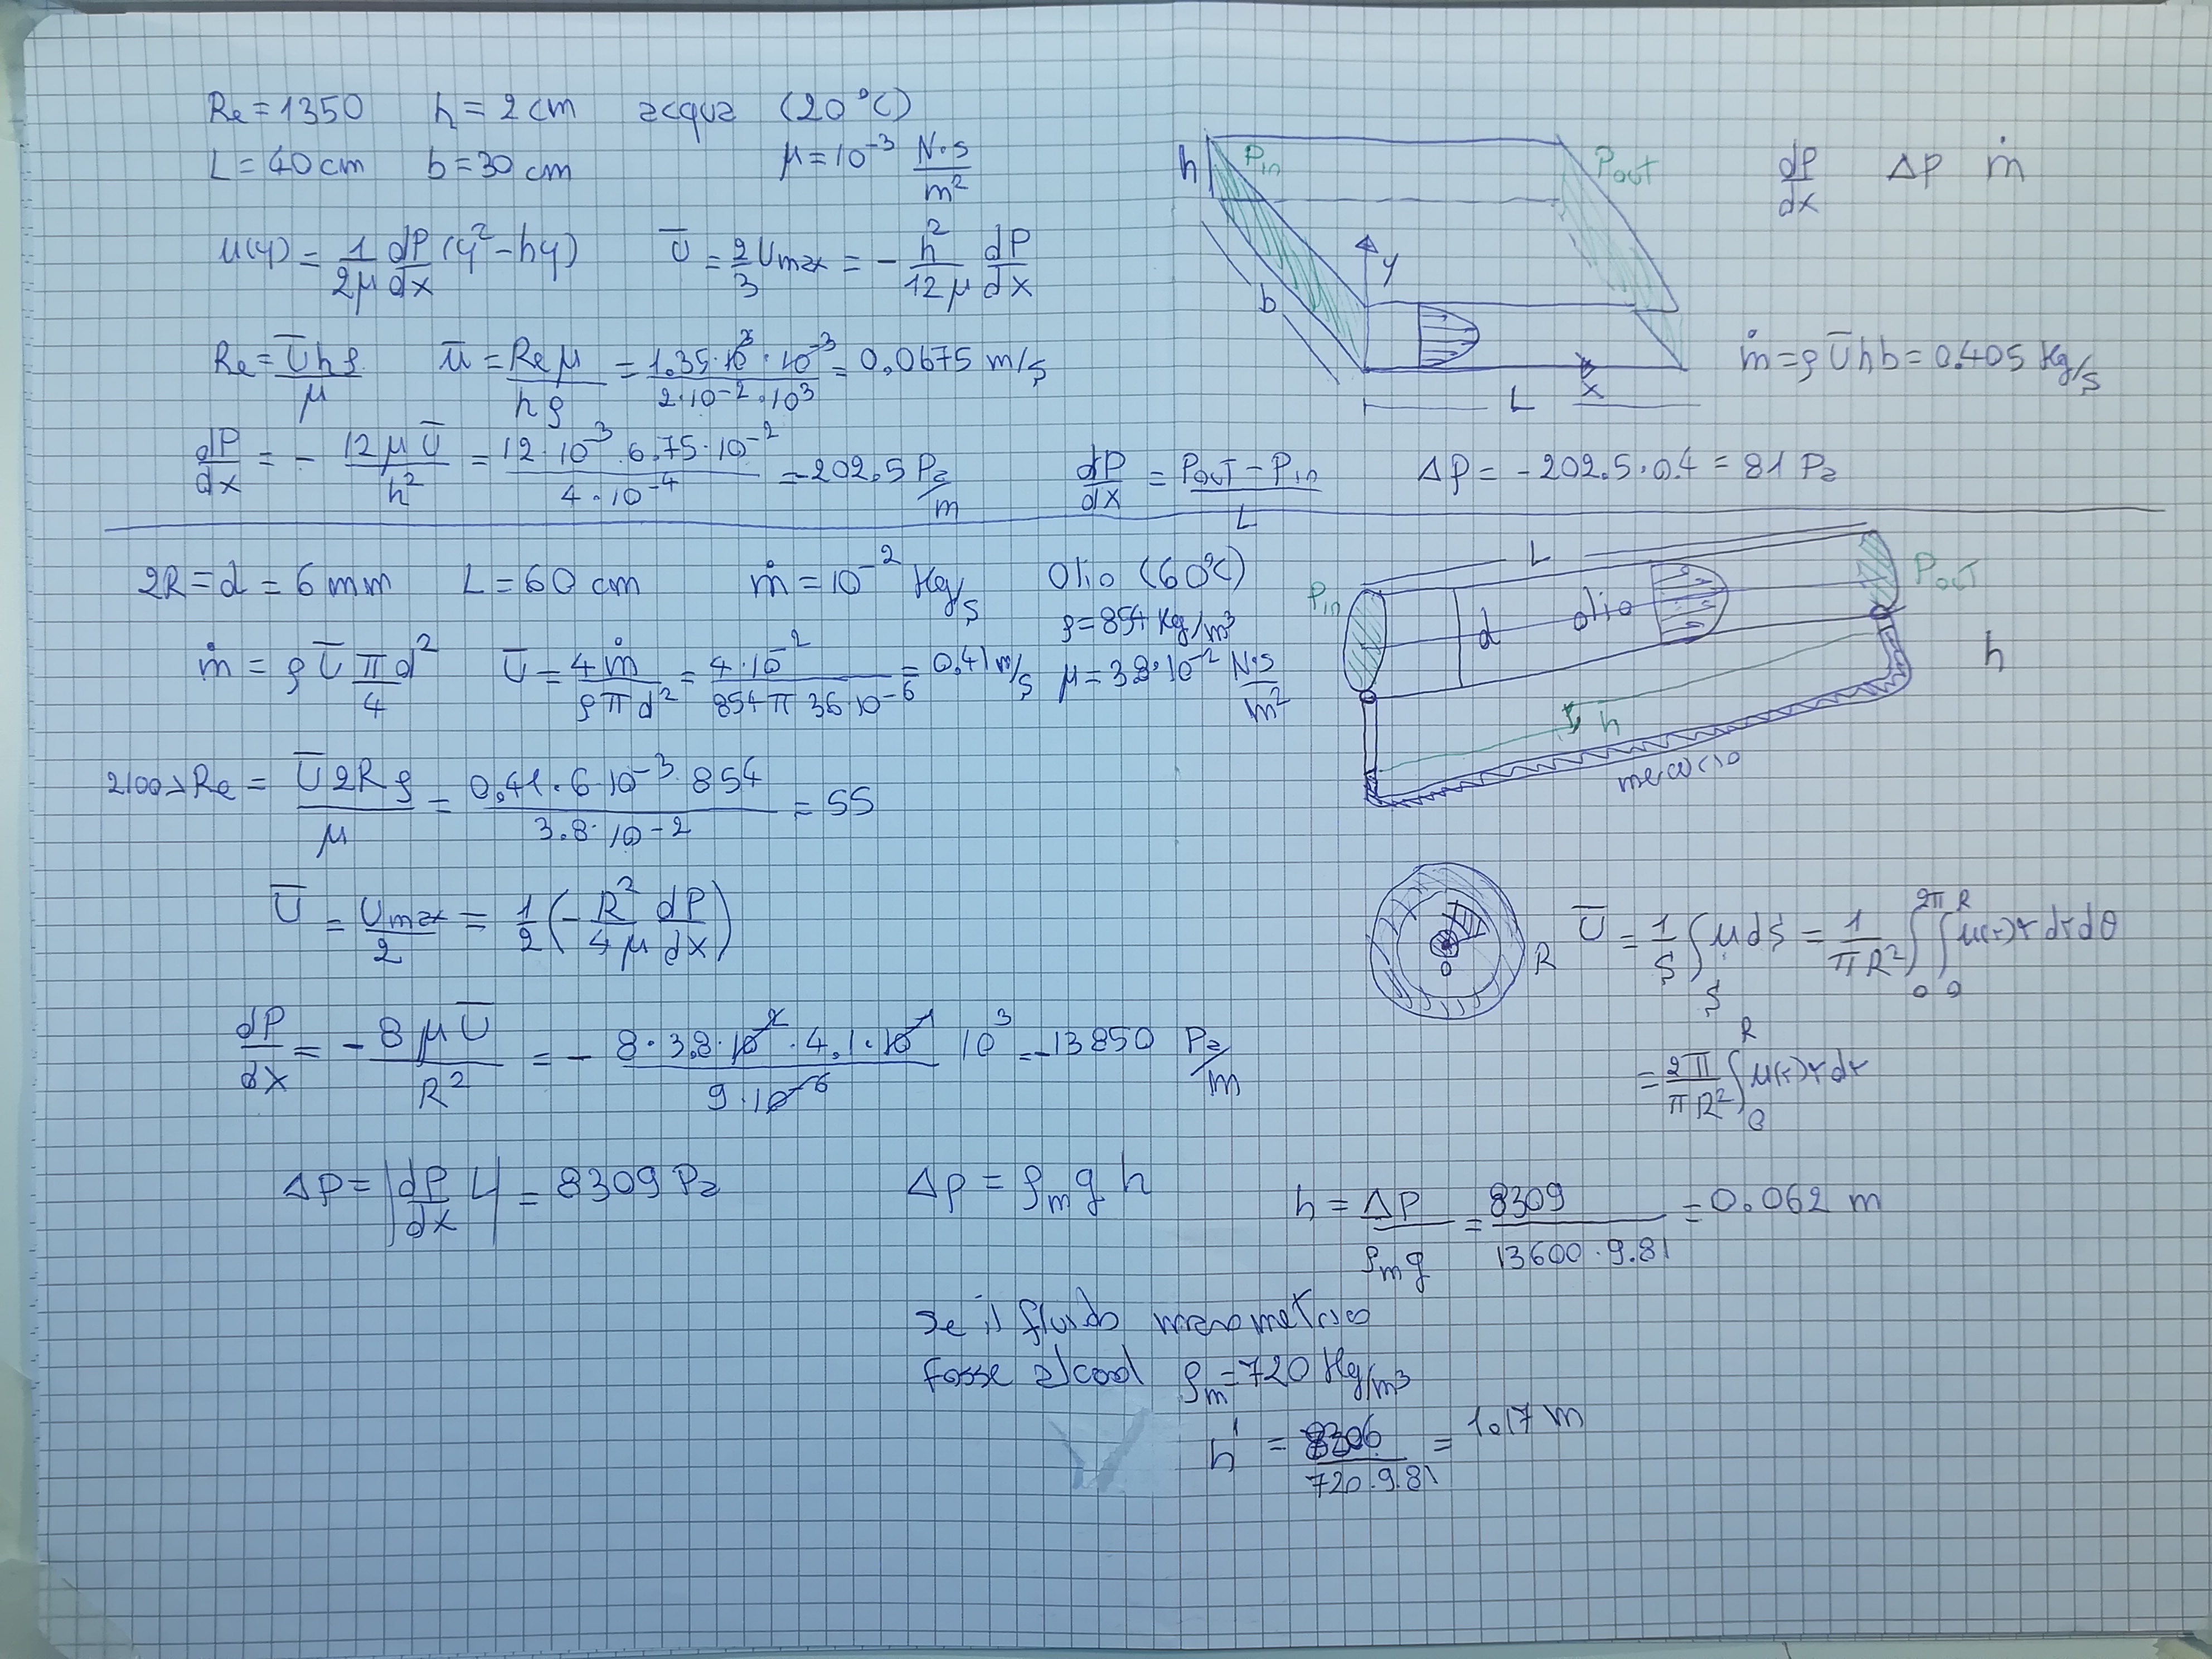 Re = 1350 h = 2 cm acqua (20°C)
L = 40 cm b = 30 cm μ = 10⁻³ N·s/m²
h Pin Pout dP/dx ΔP ṁ
u(y) = 1/2μ dP/dx (y² - hy) U̅ = 2/3 Umax = - h²/12μ dP/dx
y
b
Re = U̅hρ/μ u̅ = Re μ/hρ = 1.35·10³·10⁻³/2·10⁻²·10³ = 0,0675 m/s
ṁ = ρ U̅ h b = 0.405 Kg/s
x
L
dP/dx = - 12 μ U̅/h² = 12·10⁻³·6.75·10⁻²/4·10⁻⁴ = -202,5 Pa/m dP/dx = Pout - Pin/L ΔP = -202.5·0.4 = 81 Pa
2R = d = 6 mm L = 60 cm ṁ = 10⁻² Kg/s Olio (60°C)
ρ = 854 Kg/m³
L
Pin d olio Pout
h
ṁ = ρ U̅ πd²/4 U̅ = 4ṁ/ρπd² = 4·10⁻²/854 π 36·10⁻⁶ = 0,41 m/s μ = 3.8·10⁻² N·s/m²
h
mercurio
2100 > Re = U̅2Rρ/μ = 0,41·6·10⁻³·854/3.8·10⁻² = 55
U̅ = Umax/2 = 1/2 (- R²/4μ dP/dx)
0 R
U̅ = 1/S ∫S u ds = 1/πR² ∫₀^2π ∫₀^R u(r) r dr dθ
= 2π/πR² ∫₀^R u(r) r dr
dP/dx = - 8 μ U̅/R² = - 8·3,8·10⁻²·4,1·10⁻¹/9·10⁻⁶ 10³ = -13850 Pa/m
ΔP = |dP/dx L| = 8309 Pa ΔP = ρm g h h = ΔP/ρm g = 8309/13600·9.81 = 0.062 m
Se il fluido manometrico
fosse alcool ρm = 720 Kg/m³
h' = 8306/720·9.81 = 1.17 m